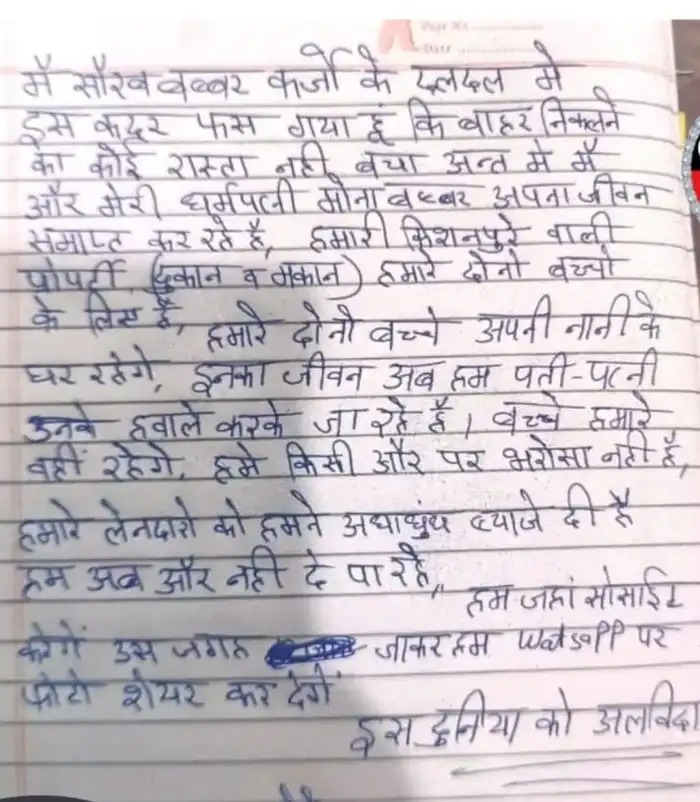 Page No.
Date
मैं सौरव बब्बर कर्जो के दलदल मे
इस कदर फस गया हूं कि बाहर निकलने
का कोई रास्ता नही बचा अन्त मे मैं
और मेरी धर्मपत्नी मोना बब्बर अपना जीवन
समाप्त कर रहे है, हमारी किशनपुरे वाली
प्रोपर्टी, (दुकान व मकान) हमारे दोनो बच्चो
के लिए है, हमारे दोनो बच्चे अपनी नानी के
घर रहेगे, इनका जीवन अब हम पती-पत्नी
उनके हवाले करके जा रहे है। बच्चे हमारे
वहीं रहेगे, हमे किसी और पर भरोसा नही है,
हमारे लेनदारो को हमने अंधाधुंध ब्याजे दी है
हम अब और नही दे पा रहे,, हम जहां सोसाईट
करेगें उस जगह जाकर हम Watsapp पर
फोटो शेयर कर देगें
इस दुनिया को अलविदा